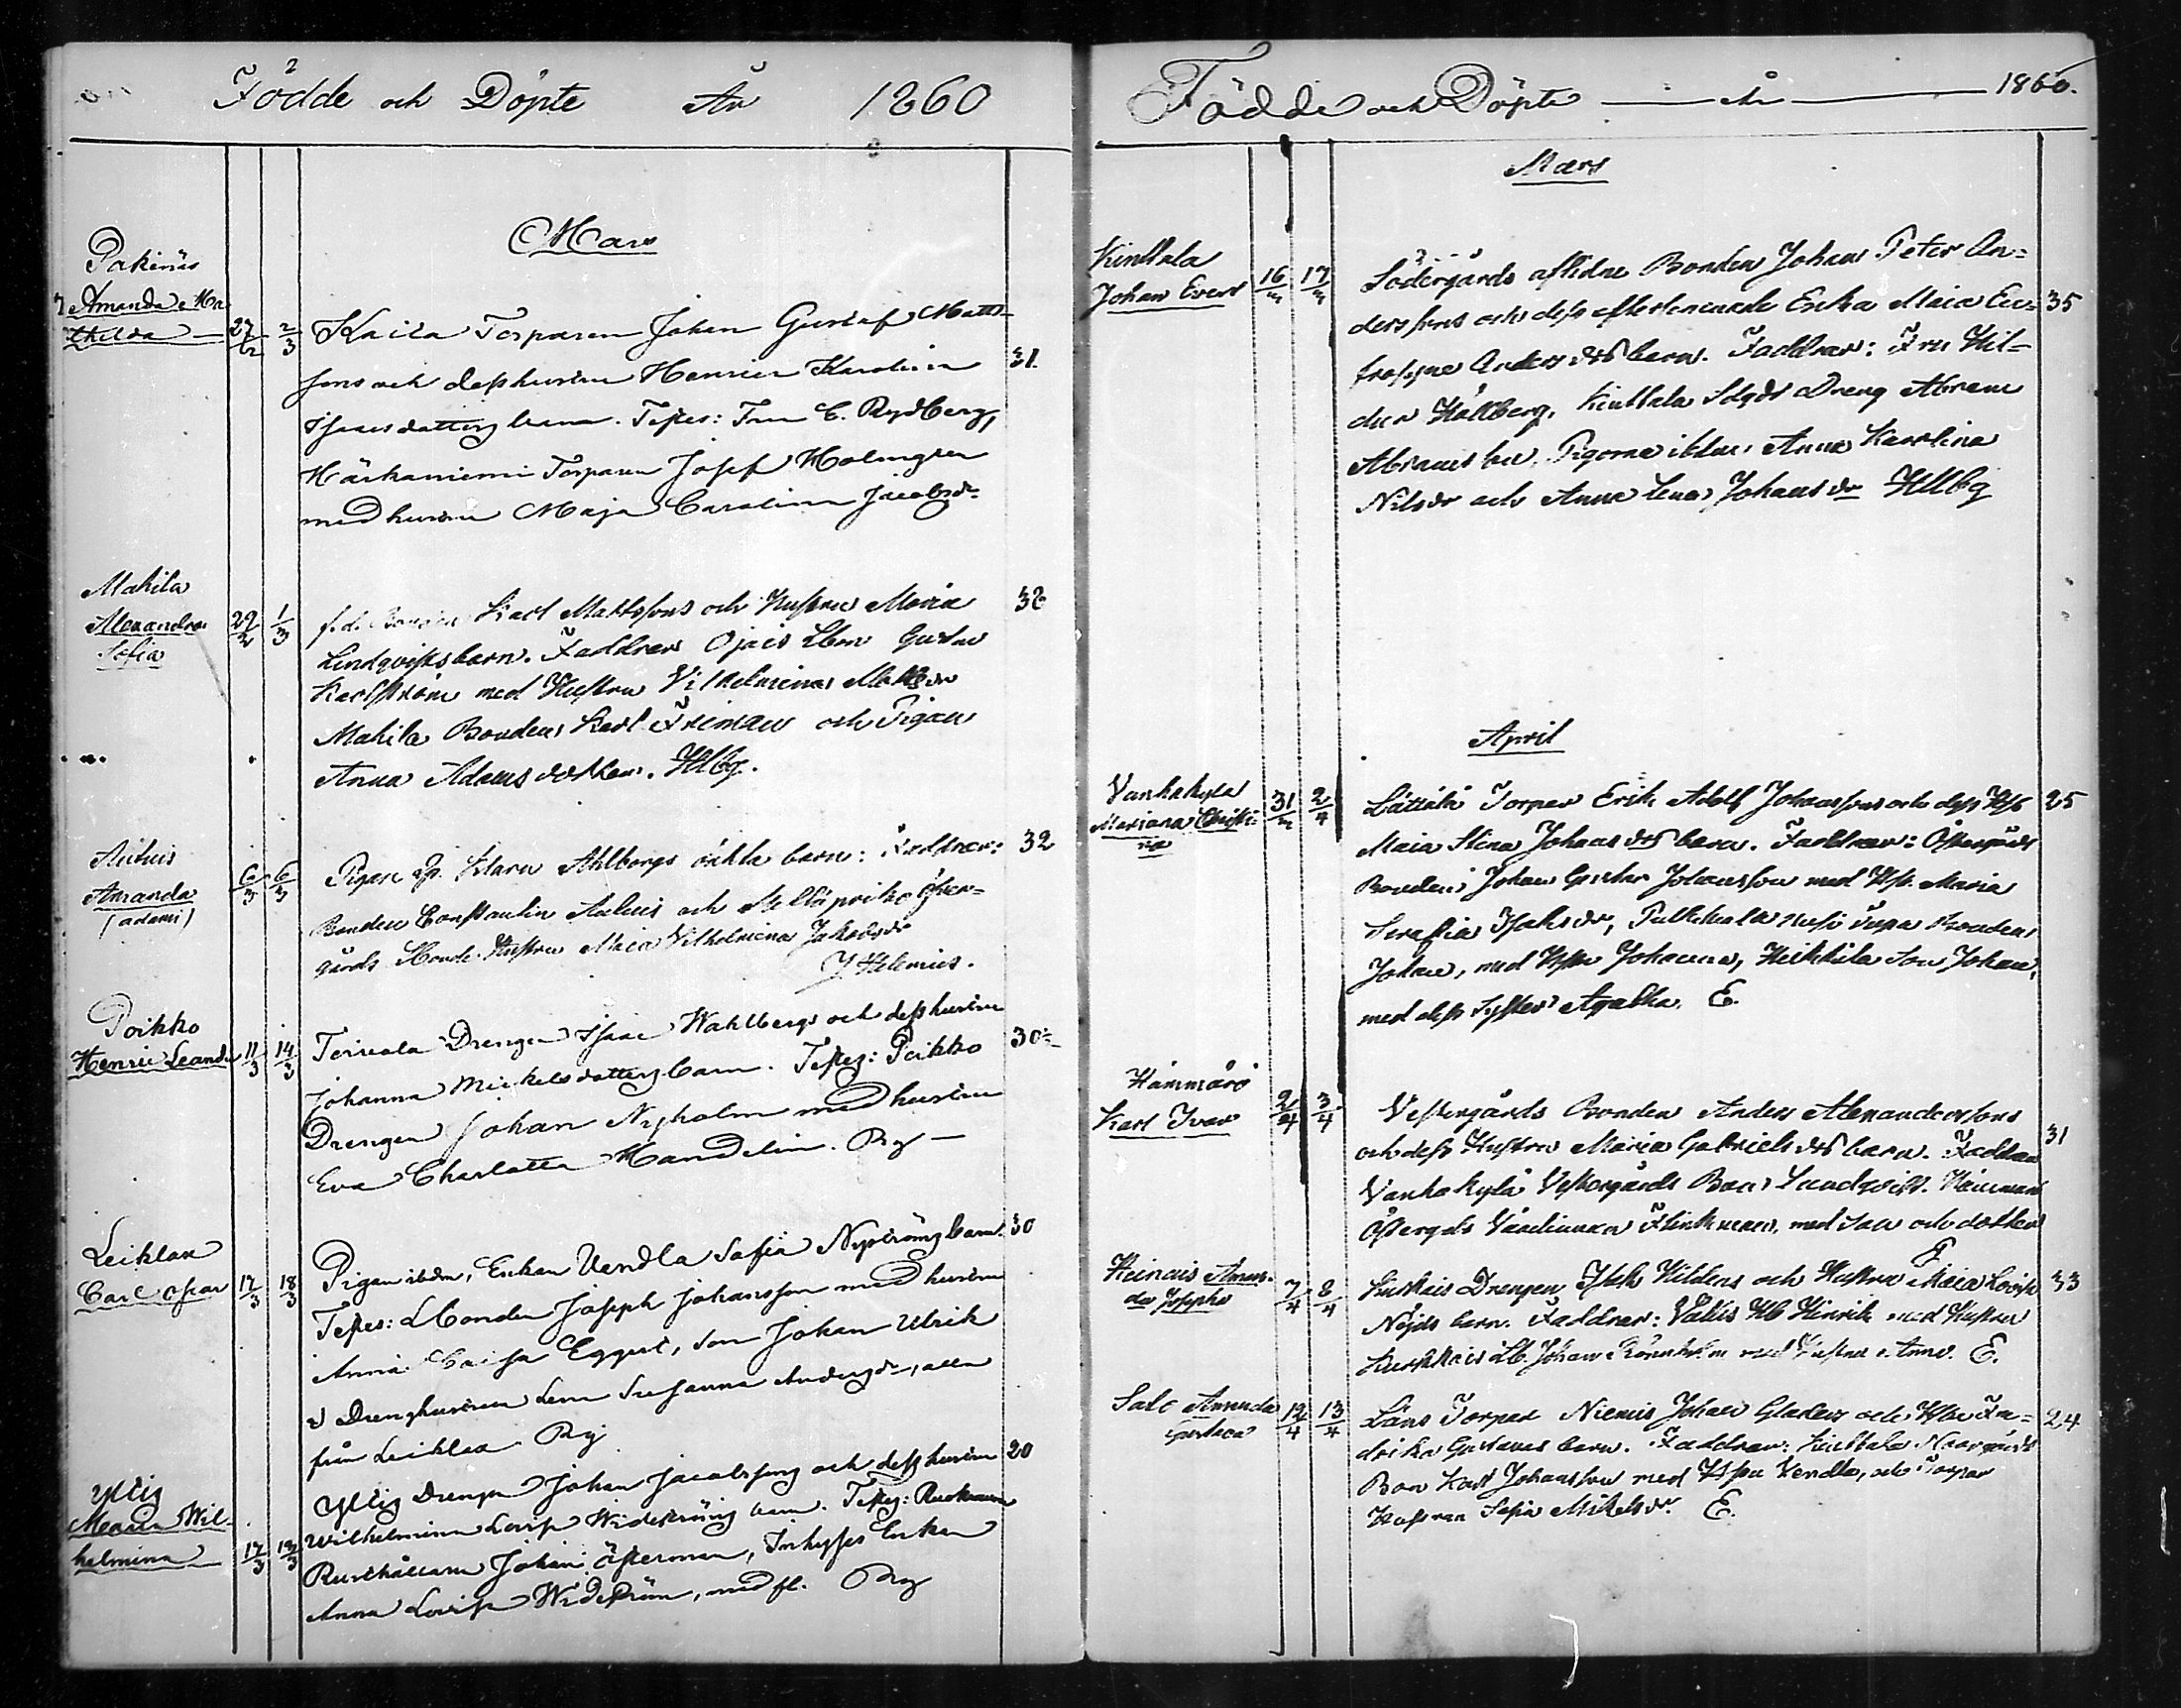 Födde och Döpte År 1860
Mars
Pakinäs
Amanda Ma-
thilda 27/2 2/3
Kaila Torparen Johan Gustaf Matts-
sons och dess hustru Henrica Karolina 31.
Isaacsdotters barn. Testes: Fru C. Rydberg,
Härkäniemi Torparen Josef Holmgren
med hustru Maja Carolina Jacobsdr
Mahila
Alexandra
Sofia 29/2 1/3
f.d. Bonden Karl Mattssons och Hustru Maria 32
Lindqvists barn. Faddrar Ojais Lbon Gustav
Karlström med Hustru Vilhelmina Mattsdr
Mahila Bonden Karl Friman och Pigan
Anna Adamsdotter. Hllbg.
Anhuis
Amanda
(adami) 6/3 6/3
Pigan Klara Ahlborgs oäkta barn: Faddrar: 32
Bonden Constantin Anhuis och Mellispirko Öster-
gårds Bonde Hustru Maria Vilhelmina Jakobsdr
J Helenius.
Poikko
Henric Leander 11/3 14/3
Teireala Drengen Isaac Wahlbergs och dess hustru
Johanna Mickelsdotters barn. Testes: Poikko 30
Drengen Johan Nyholm med hustru
Eva Charlotta Mandelin. Rg
Leiklax
Carl Oscar 17/3 18/3
Pigan ibdm, Enkan Vendla Sofia Nyströms barn. 30
Testes: LBonden Joseph Johansson med hustru
Anna Caisa Eggert, son Johan Ulrik
Drenghustrun Lena Susanna Andersdr, alla
från Leiklax Rg
Yltis
Maria Wil-
helmina 17/3 18/3
Yltis Drengen Johan Jacobssons och dess hustru 20
Wilhelmina Lovisa Wideströms barn. Testes:
Rusthållaren Johan Österman, Inhyses Enkan
Anna Lovisa Wideström, med fl. Rg
Födde och Döpte År 1860.
Mars
Kinttala
Johan Evert 16/3 17/3
Södergårds aflidne Bonden Johan Peter An-
derssons och dess efterlemnade Enka Maia Eu- 35
frosyne Andersdrs barn. Faddrar: Fru Hil-
dur Hållberg, Kinttala Sdgds Dreng Abram
Abramsson, Pigorna ibdm Anna Karolina
Nilsdr och Anna Lena Johansdr Hllbg
April
Vanhakylä
Mariana Christi-
na 31/3 2/4
Lättälä Torpar Erik Adolf Johanssons och dess Hst 25
Maia Stina Johansdrs barn. Faddrar: Östergårds
Bonden Johan Gustav Johansson med Hst. Maria
Serafia Isaksdr, Bonden
Johan, med Hstr Johanna, Heikkilä son Johan,
med dess Syster Agatha. E.
Hämmärö
Karl Ivar 2/4 3/4
Vestergårds Bonden Anders Alexanderssons
och dess Hustru Maria Gabrielsdrs barn. Faddrar 31
Vanhakylä Vestergårds Bon Lundqvist.
Östergds Flinkman, med son och dotter
Heinais Aman-
da Josepha 7/4 8/4
Kuskais Drengen Isak Hildens och Hustru Maia Lovisa 33
Nöjds barn. Faddrar: Hinrik med Hustru
Kuskkais LB. Johan Rönnholm med Hustru Anna. E.
Salo Amanda
Gustava 12/4 13/4
Läns Torpar Niemis Johan Gladens och Hbr Fre- 24
drika Gustavas barn. Faddrar: Kinttala Norrgårds
Bon Karl Johansson med Hstru Vendla, och Torpar
Hustrun Sofia Mikelsdr. E.